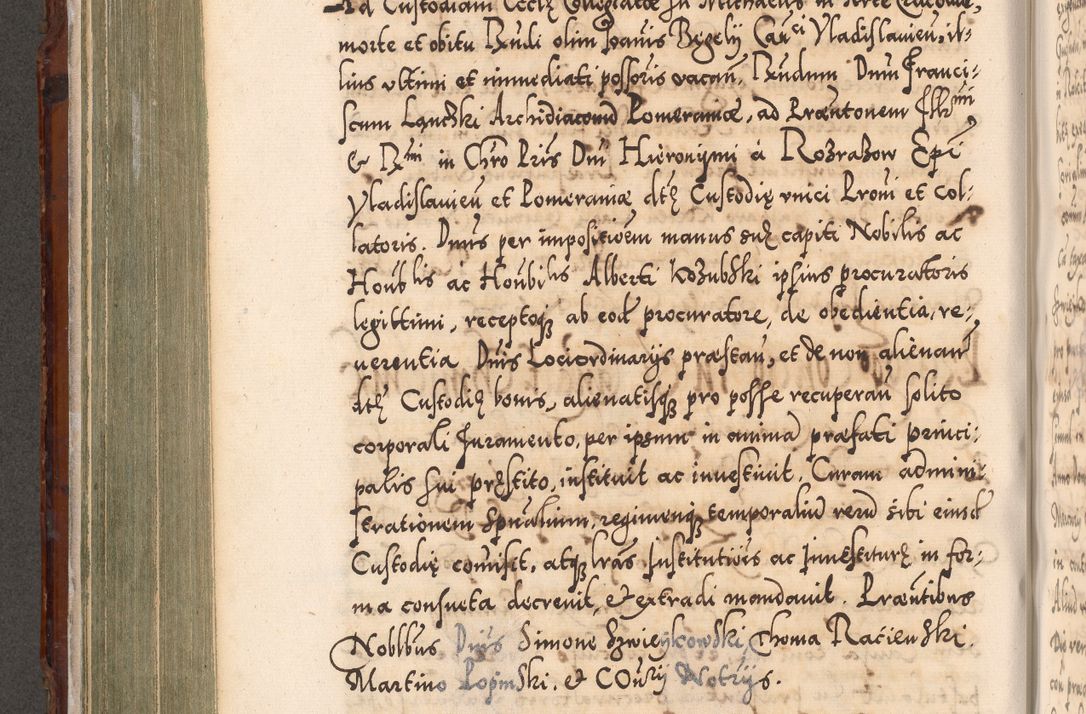 Ad Custodiam Ecclę Collegiatæ S. Michaelis in Arce
morte et obitu Rndi olim Joanis Begelij Canci Vladislavien, il⸗
lius vltimi et immediati possoris vacan, Rndum Dnum Franci⸗
scum Ląnczki Archidiaconū Pomeraniæ, ad Præntonem Illrmi
& Rmi in Chro Pris Dni Hieronymi à Rozrażow Epi
Vladislavien et Pomeraniæ dtę Custodię vnici Proni et Col⸗
latoris. Dnus per impositioēm manus suę capiti Nobilis ac
Honblis ac Honbilis Alberti Kozubski ipsius procuratoris
legittimi, receptoq; ab eodē procuratore, de obedientia, re⸗
uerentia Dnis Lociordinarijs præstan, et de non alienanđ
dtę Custodię bonis, alienatisq; pro posse recuperan solito
corporali Juramento, per ipsum in animā præfati princi⸗
palis sui pręstito, instituit ac inuestiuit, Curam admini⸗
strationem spnalium, regimenq; temporaliū rerū sibi eiusđ
Custodię comisit, atq; lras Institutiois ac Inuestiturę in for⸗
ma consueta decreuit, & extradi mandauit. Præntibus
Noblbus Dnis Simone Szwieykowski, Thoma Racienski.
Martino Lopinski. & Conrij Notrijs.